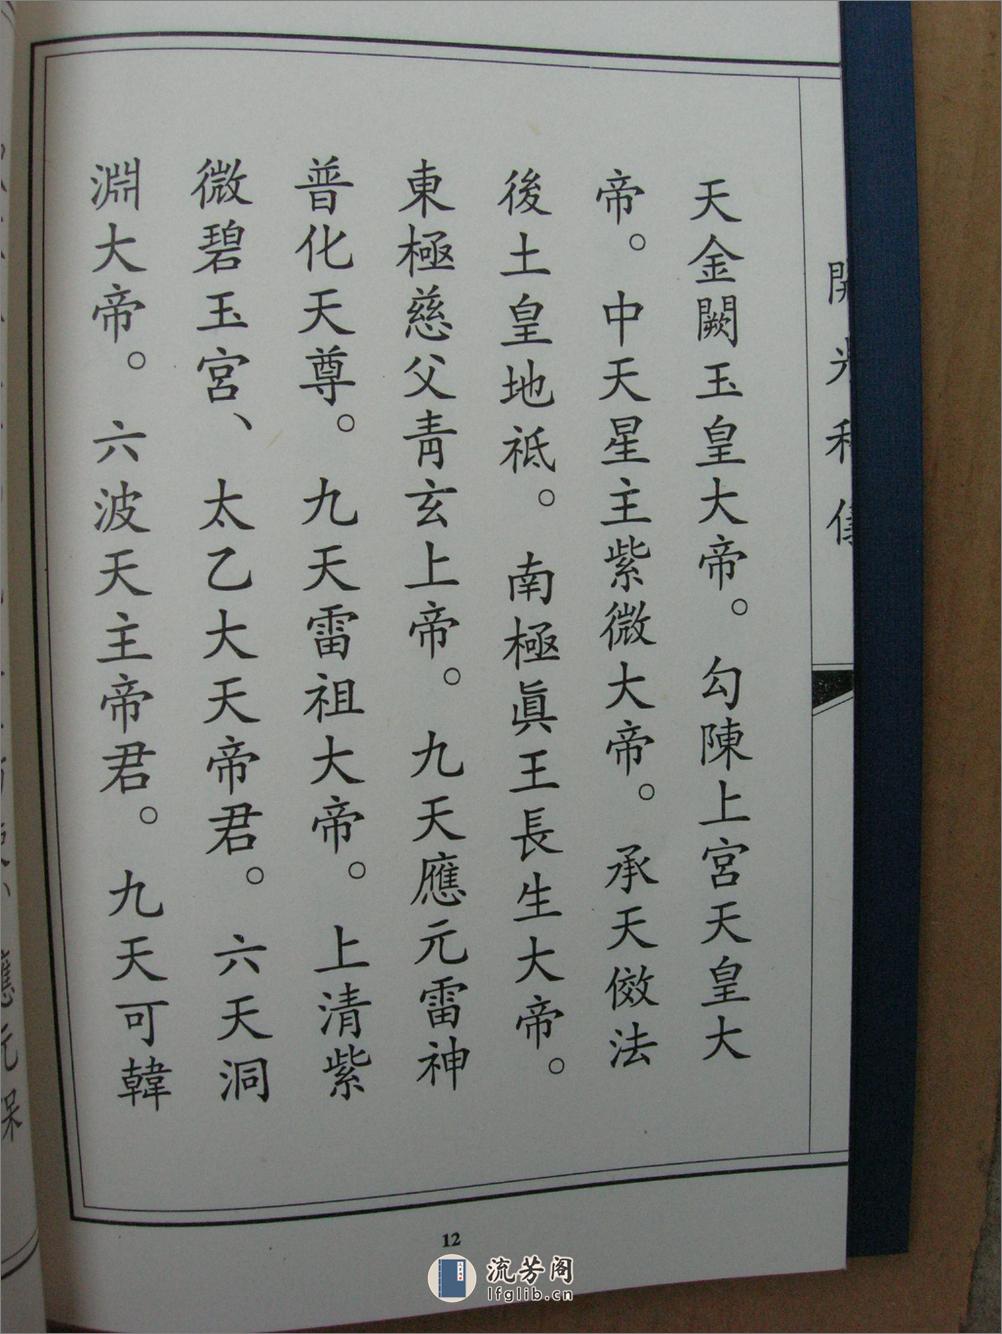 開光科儀
天金闕玉皇大帝。勾陳上宮天皇大
帝。中天星主紫微大帝。承天傚法
後土皇地祇。南極眞王長生大帝。
東極慈父青玄上帝。九天應元雷神
普化天尊。九天雷祖大帝。上清紫
微碧玉宮、太乙大天帝君。六天洞
淵大帝。六波天主帝君。九天可韓
應元保
12
流芳阁
lfglib.cn